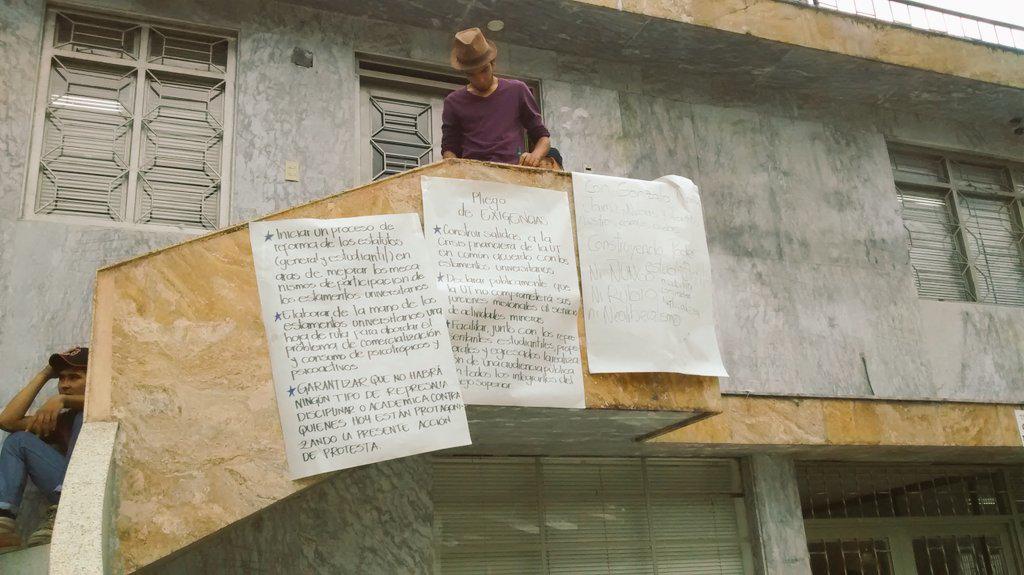 ★ Iniciar un proceso de
reforma de los estatutos
(general y estudiantil) en
aras de mejorar los meca
nismos de participación de
los estamentos universitarios
★ Elaborar de la mano de los
estamentos universitarios una
hoja de ruta para abordar el
problema de comercialización
y consumo de psicotrópicos y
psicoactivos
★ GARANTIZAR QUE NO HABRÁ
NINGÚN TIPO DE REPRESALIA
DISCIPLINAR O ACADEMICA CONTRA
QUIENES HOY ESTAN PROTAGONI
ZANDO LA PRESENTE ACCIÓN
DE PROTESTA.
Pliego
de EXIGENCIAS
★ Construir salidas a la
Crisis financiera de la UT
en común acuerdo con los
estamentos universitarios
★ Declarar publicamente que
la UT no comprometerá sus
funciones misionales al servicio
de actividades mineras
Facilitar, junto con los repre
sentantes estudiantiles, profe
orales y egresados la realiza
ón de una audiencia pública
n todos los integrantes del
ejo Superior
Construyendo
Ni
Ni Rubio
Ni Neoliberalismo